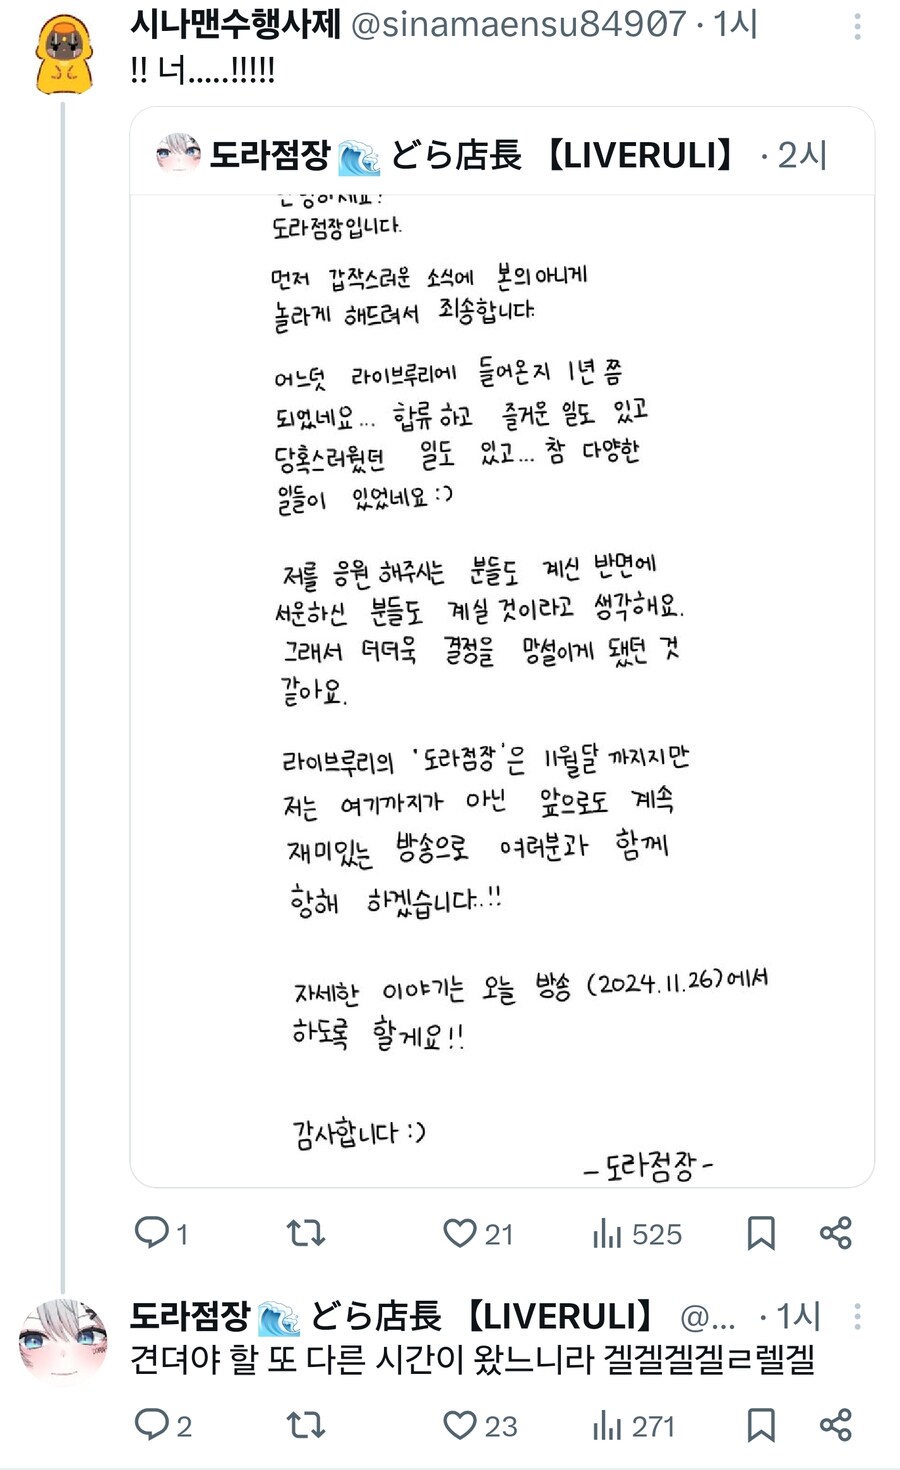 시나맨수행사제 @sinamaensu84907 · 1시
!! 너.....!!!!!
도라점장🌊 どら店長 【LIVERULI】 · 2시
안녕하세요!
도라점장입니다.
먼저 갑작스러운 소식에 본의아니게
놀라게 해드려서 죄송합니다.
어느덧 라이브루리에 들어온지 1년 쯤
되었네요... 합류하고 즐거운 일도 있고
당혹스러웠던 일도 있고... 참 다양한
일들이 있었네요 :)
저를 응원 해주시는 분들도 계신 반면에
서운하신 분들도 계실 것이라고 생각해요.
그래서 더더욱 결정을 망설이게 됐던 것
같아요.
라이브루리의 '도라점장'은 11월달 까지지만
저는 여기까지가 아닌 앞으로도 계속
재미있는 방송으로 여러분과 함께
항해 하겠습니다..!!
자세한 이야기는 오늘 방송 (2024.11.26)에서
하도록 할게요!!
감사합니다 :)
- 도라점장 -
1 21 525
도라점장🌊 どら店長 【LIVERULI】 @... · 1시
견뎌야 할 또 다른 시간이 왔느니라 겔겔겔겔ㄹ렐겔
2 23 271